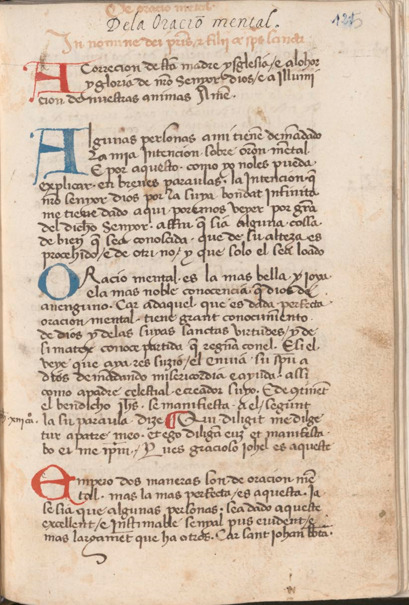 De oracio mental.
Dela Oració mental.
121
In nomine dei pris, et filii et sps sancti
A Correcion de sta madre ysglesia, e a lohor
y gloria de nro Senyor dios, e a Illumi
cion de nuestras animas Amē.
Algunas personas a mi tiene demādado
La mia Intencion sobre orōn mental
E por aquesto, como yo no les pueda
explicar en breues paraulas, la Intencion q̄
nro senyor dios por la suya bondat Infinita
me tiene dado aqui, poremos veyer por grā
del dicho Senyor, affin q̄ sia alguna cossa
de bien q̄ sea conosada, que de su alteza es
procehido, e de otri no, y que solo el sea loado
ORacio mental, es la mas bella, y Joya
e la mas noble conocencia q̄ dios de
a nenguno. Car adaquel que es dada perfecta
oracion mental, tiene grant conocimēto
de dios y delas suyas sanctas virtudes, y de
si matex conoce partida q̄ regna con el. E si el
veye que apares suzio, el enuia su spū a
dios demādando misericordia e ayuda, assi
como a padre celestial, e creador suyo. E de cōtinēt
el bendicho Jhs. se manifiesta a el, segunt
la su paraula dize ¶ Qui diligit me dilige
tur a patre meo. et ego diligā eum et manifesta
bo ei me ipm, Y Pues gracioso Johel es aqueste
Empero dos maneras son de oracion mē
tal. mas la mas perfecta, es aquesta. Ja
se sia que algunas personas, sea dado aqueste
excellent, e Inestimable senyal pus euident, e
mas largamēt que ha otros. Car sant Johan bōta.